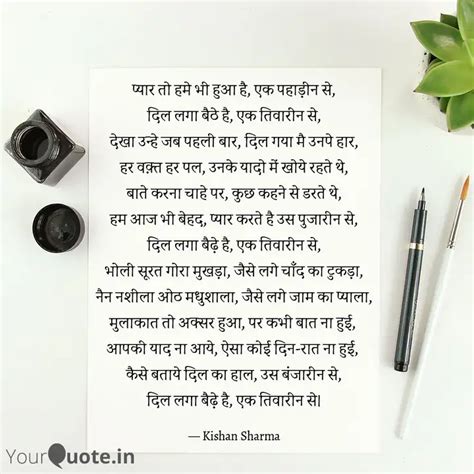 प्यार तो हमे भी हुआ है, एक पहाड़ीन से,
दिल लगा बैठे है, एक तिवारीन से,
देखा उन्हे जब पहली बार, दिल गया मै उनपे हार,
हर वक़्त हर पल, उनके यादो में खोये रहते थे,
बाते करना चाहे पर, कुछ कहने से डरते थे,
हम आज भी बेहद, प्यार करते है उस पुजारीन से,
दिल लगा बैढ़े है, एक तिवारीन से,
भोली सूरत गोरा मुखड़ा, जैसे लगे चाँद का टुकड़ा,
नैन नशीला ओठ मधुशाला, जैसे लगे जाम का प्याला,
मुलाकात तो अक्सर हुआ, पर कभी बात ना हुई,
आपकी याद ना आये, ऐसा कोई दिन-रात ना हुई,
कैसे बताये दिल का हाल, उस बंजारीन से,
दिल लगा बैढ़े है, एक तिवारीन से।
— Kishan Sharma
YourQuote.in